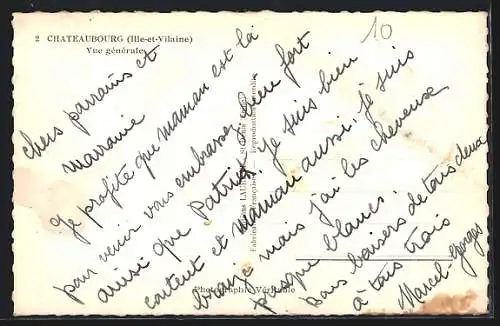 2 CHATEAUBOURG (Ille-et-Vilaine)
Vue générale
10
chers parrains et
marraine
Je profite que maman est là
pour venir vous embrasser bien fort
ainsi que Patrick. Je suis bien
content et maman aussi, je suis
bronzé mais j'ai les cheveux
presque blancs.
Bons baisers de tous deux
à tous trois
Marcel-Georges
Photographie Véritable